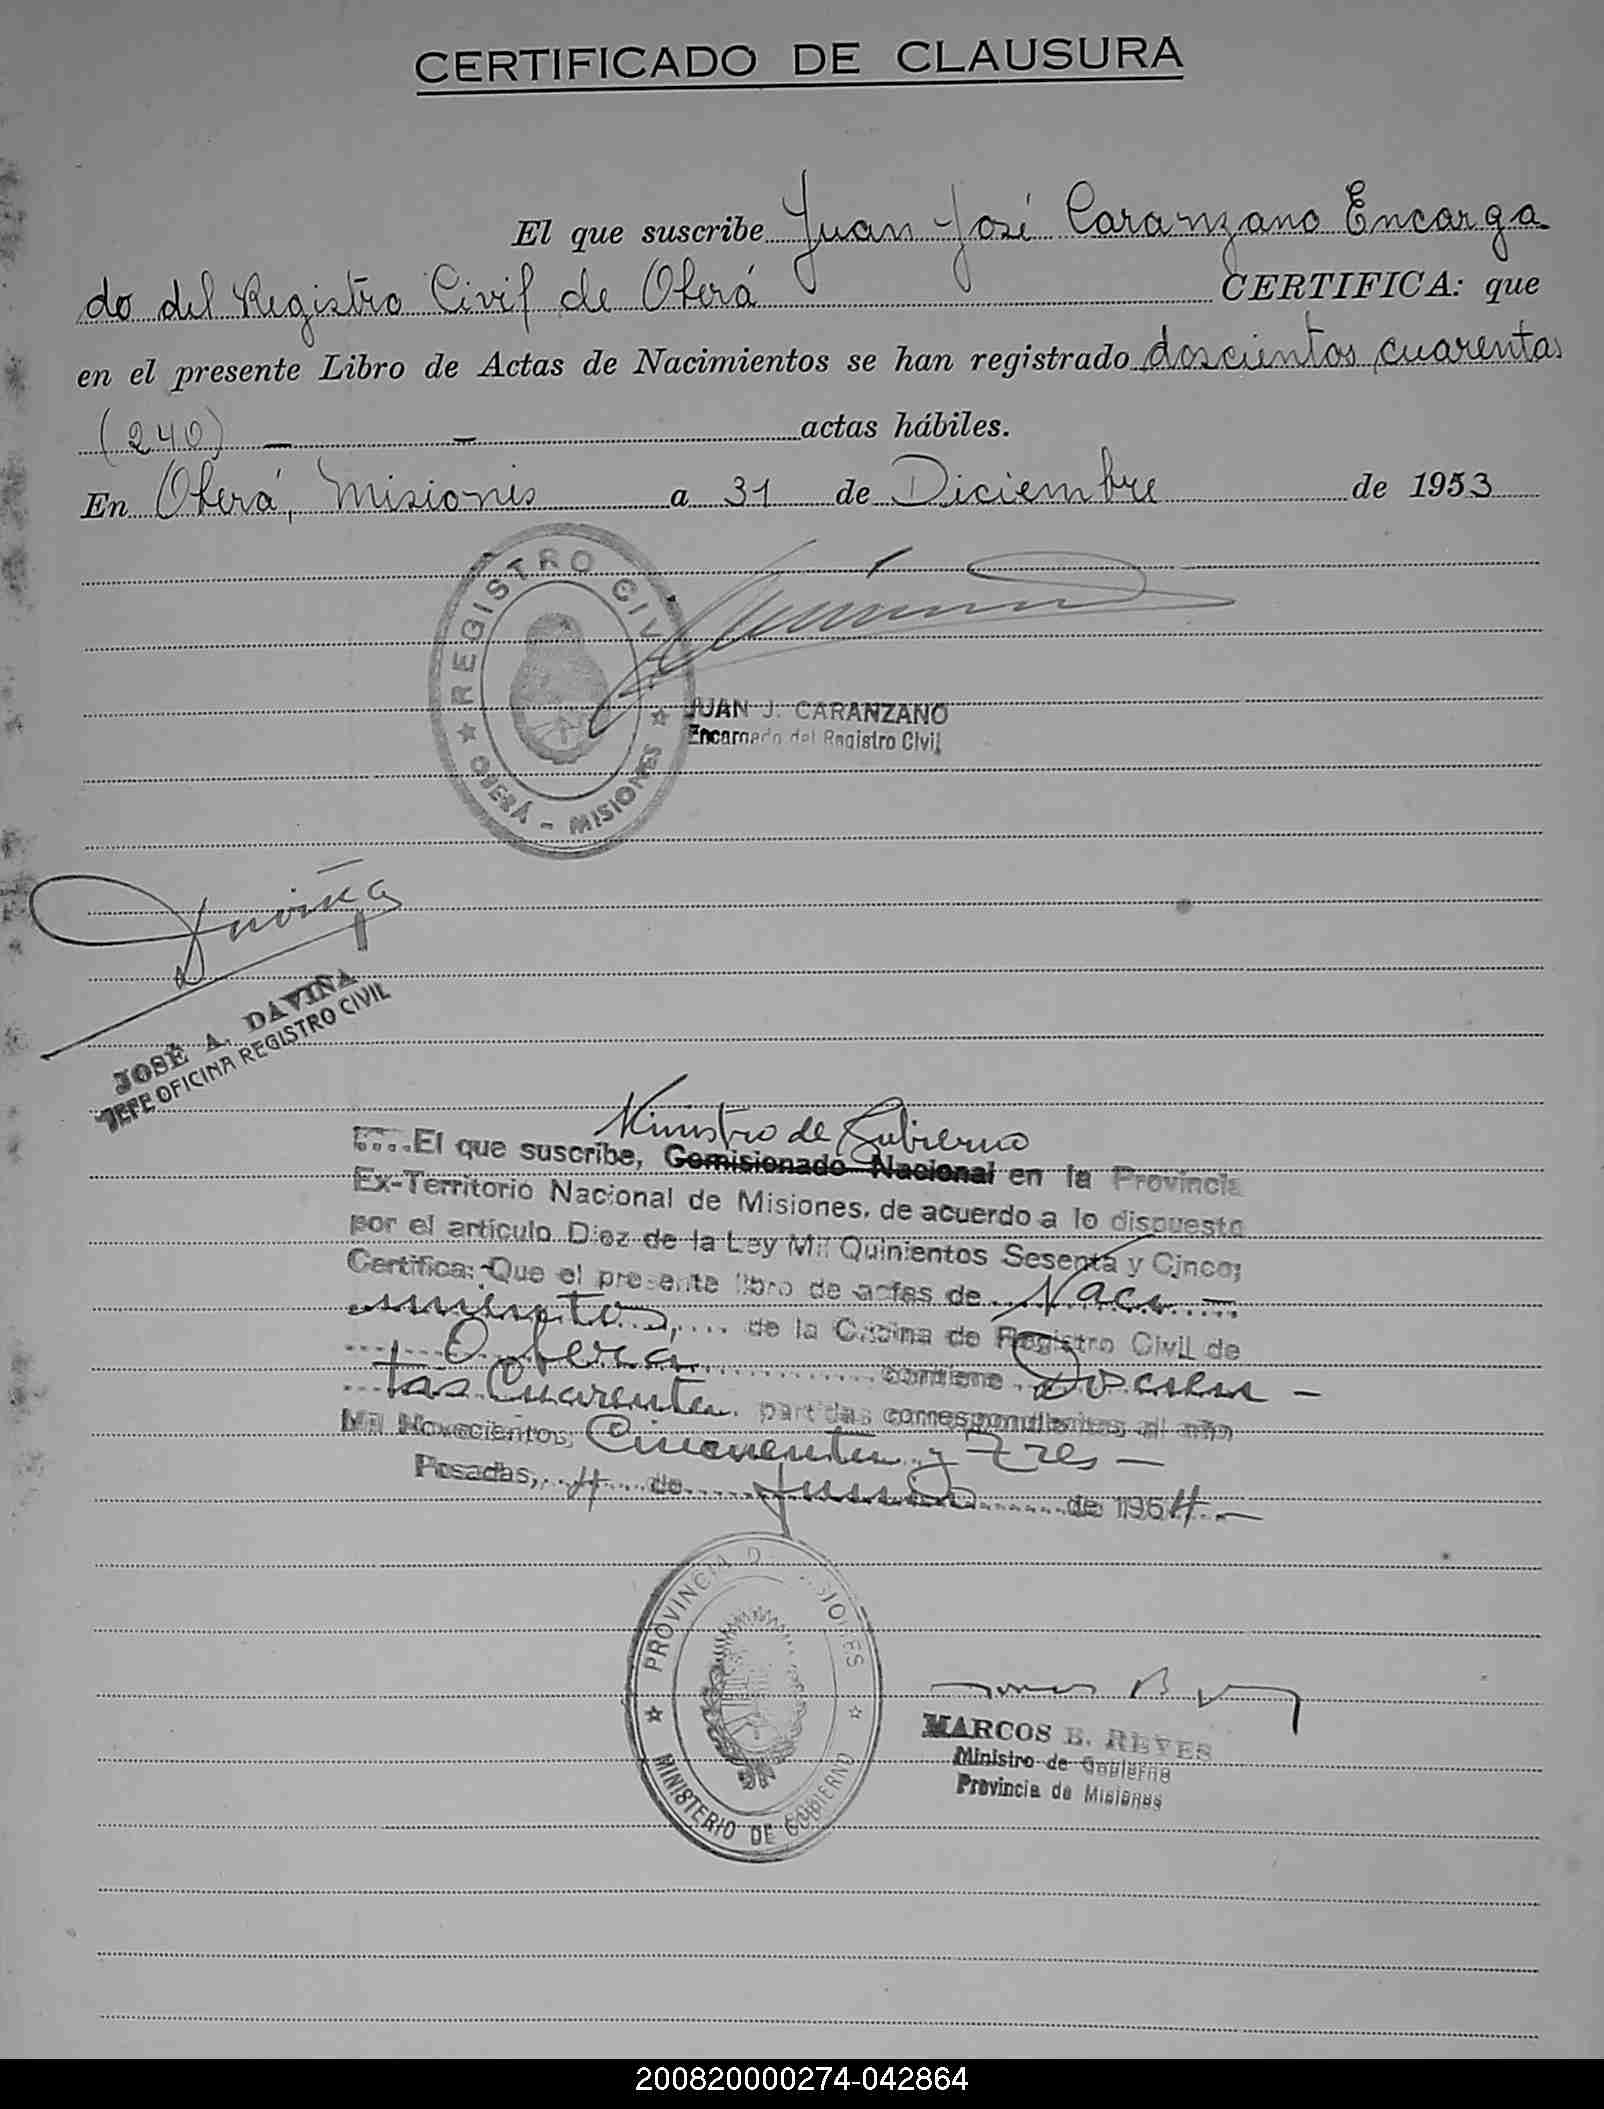 CERTIFICADO DE CLAUSURA
El que suscribe Juan José Caranzano Encarga
do del Registro Civil de Oberá CERTIFICA: que
en el presente Libro de Actas de Nacimientos se han registrado doscientos cuarentas
(240) — — actas hábiles.
En Oberá, Misiones a 31 de Diciembre de 1953
REGISTRO CIVIL
OBERÁ - MISIONES
JUAN J. CARANZANO
Encargado del Registro Civil
Daviña
JOSÉ A. DAVIÑA
JEFE OFICINA REGISTRO CIVIL
Ministro de Gobierno
El que suscribe, Comisionado Nacional en la Provincia
Ex-Territorio Nacional de Misiones, de acuerdo a lo dispuesto
por el artículo Diez de la Ley Mil Quinientos Sesenta y Cinco;
Certifica: Que el presente libro de actas de Naci-
mientos, de la Oficina de Registro Civil de
Obera contiene Doscien-
tas Cuarenta partidas correspondientes al año
Mil Novecientos Cincuenta y Tres —
Posadas, 4 de Junio de 1964 —
PROVINCIA DE MISIONES
MINISTERIO DE GOBIERNO
MARCOS E. REYES
Ministro de Gobierno
Provincia de Misiones
200820000274-042864